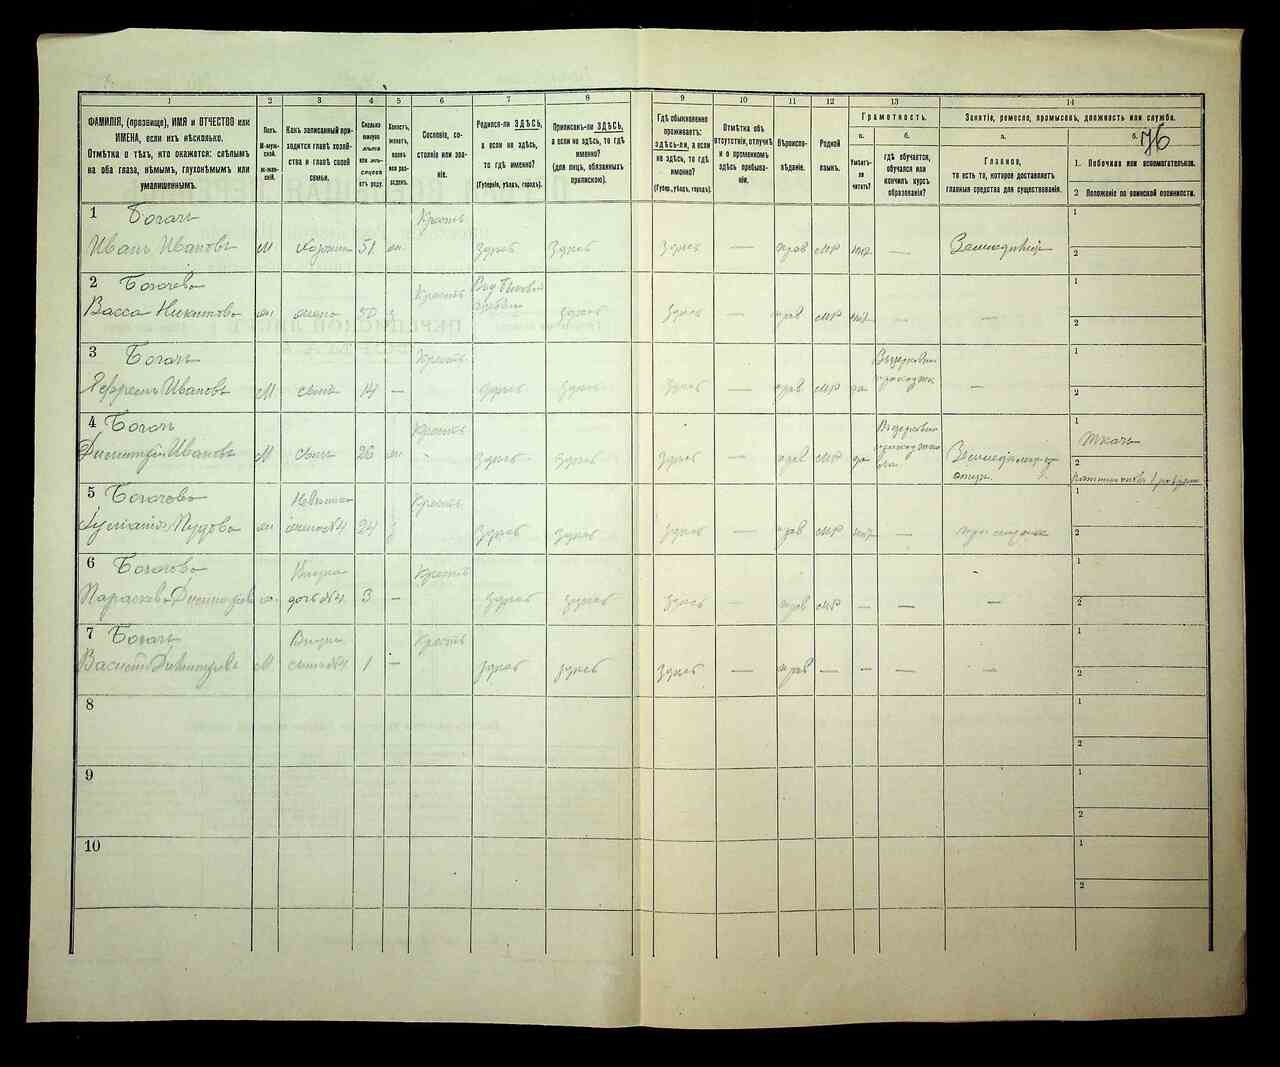 1 2 3 4 5 6 7 8 9 10 11 12 13 14
ФАМИЛІЯ, (прозвище), ИМЯ и ОТЧЕСТВО или ИМЕНА, если ихъ нѣсколько.
Отмѣтка о тѣхъ, кто окажется: слѣпымъ на оба глаза, нѣмымъ, глухонѣмымъ или умалишеннымъ.
Полъ.
М-мужской.
Ж-женскій.
Какъ записанный приходится главѣ хозяйства и главѣ своей семьи.
Сколько минуло лѣтъ или мѣсяцевъ отъ роду.
Холостъ, женатъ, вдовъ или разведенъ.
Сословіе, состояніе или званіе.
Родился-ли ЗДѢСЬ, а если не здѣсь, то гдѣ именно?
(Губернія, уѣздъ, городъ).
Приписанъ-ли ЗДѢСЬ, а если не здѣсь, то гдѣ именно?
(для лицъ, обязанныхъ припискою).
Гдѣ обыкновенно проживаетъ: здѣсь-ли, а если не здѣсь, то гдѣ именно?
(Губер., уѣздъ, городъ).
Отмѣтка объ отсутствіи, отлучкѣ и о временномъ здѣсь пребываніи.
Вѣроисповѣданіе.
Родной языкъ.
Грамотность.
а.
Умѣетъ-ли читать?
б.
гдѣ обучается, обучался или кончилъ курсъ образованія?
Занятіе, ремесло, промыселъ, должность или служба.
а.
Главное,
то есть то, которое доставляетъ главныя средства для существованія.
б. 76
1. Побочное или вспомогательное.
2 Положеніе по воинской повинности.
1 Богачъ Крестъ 1
Иванъ Ивановъ М хозяинъ 51 жн. здѣсь здѣсь здѣсь — прав мр нѣт — Земледѣліе 2
2 Богачева Крестъ 1
Васса Никитова жн жена 50 з здѣсь здѣсь — прав мр нѣт — — 2
3 Богачъ Крестъ 1
Ивановъ М сынъ 14 — здѣсь здѣсь здѣсь — прав мр да — 2
4 Богач Крестъ 1 ткачъ
Димитрій Ивановъ М сынъ 26 жн здѣсь здѣсь здѣсь — прав мр да 2
5 Богачова Невѣстка Крестъ 1
Пудова жн жена №4 24 з здѣсь здѣсь здѣсь — прав мр нѣт — при мужѣ 2
6 Богачова Внучка Крестъ 1
Параскева Димитрова жн дочь №4 3 — здѣсь здѣсь здѣсь — прав мр — — — 2
7 Богачъ Внукъ Крестъ 1
Димитровъ М сынъ №4 1 — здѣсь здѣсь здѣсь — прав — — — — 2
8 1
2
9 1
2
10 1
2